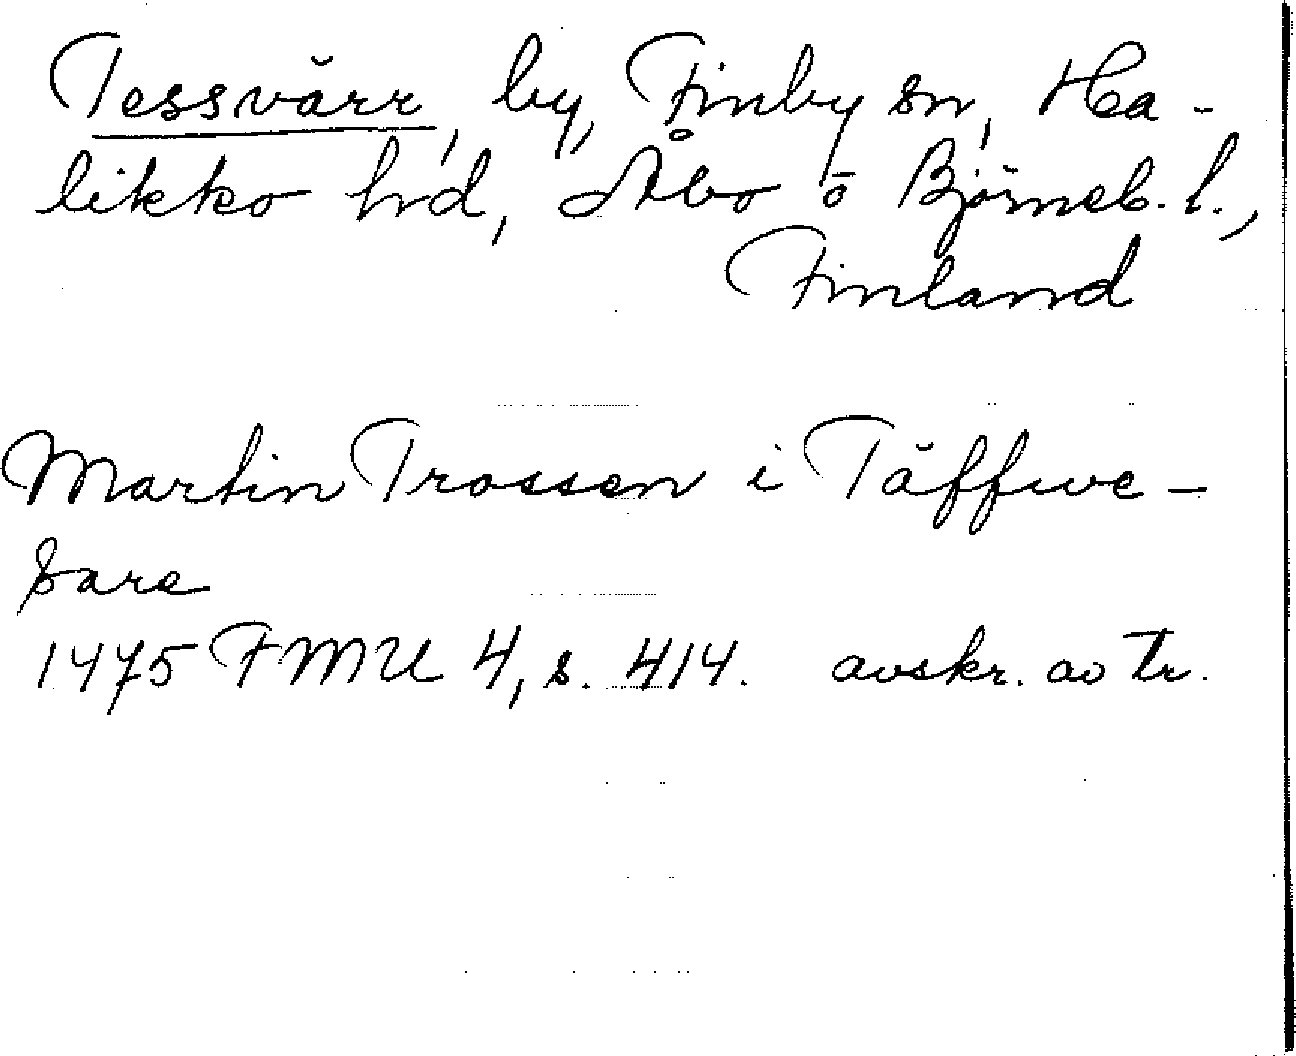 Tessvärr, by, Finby sn, Ha-
likko hd, Åbo o Björneb. l.,
Finland
Martin Trossen i Täffwe-
sare
1475 FMU 4, s. 414. avskr. av Tr.